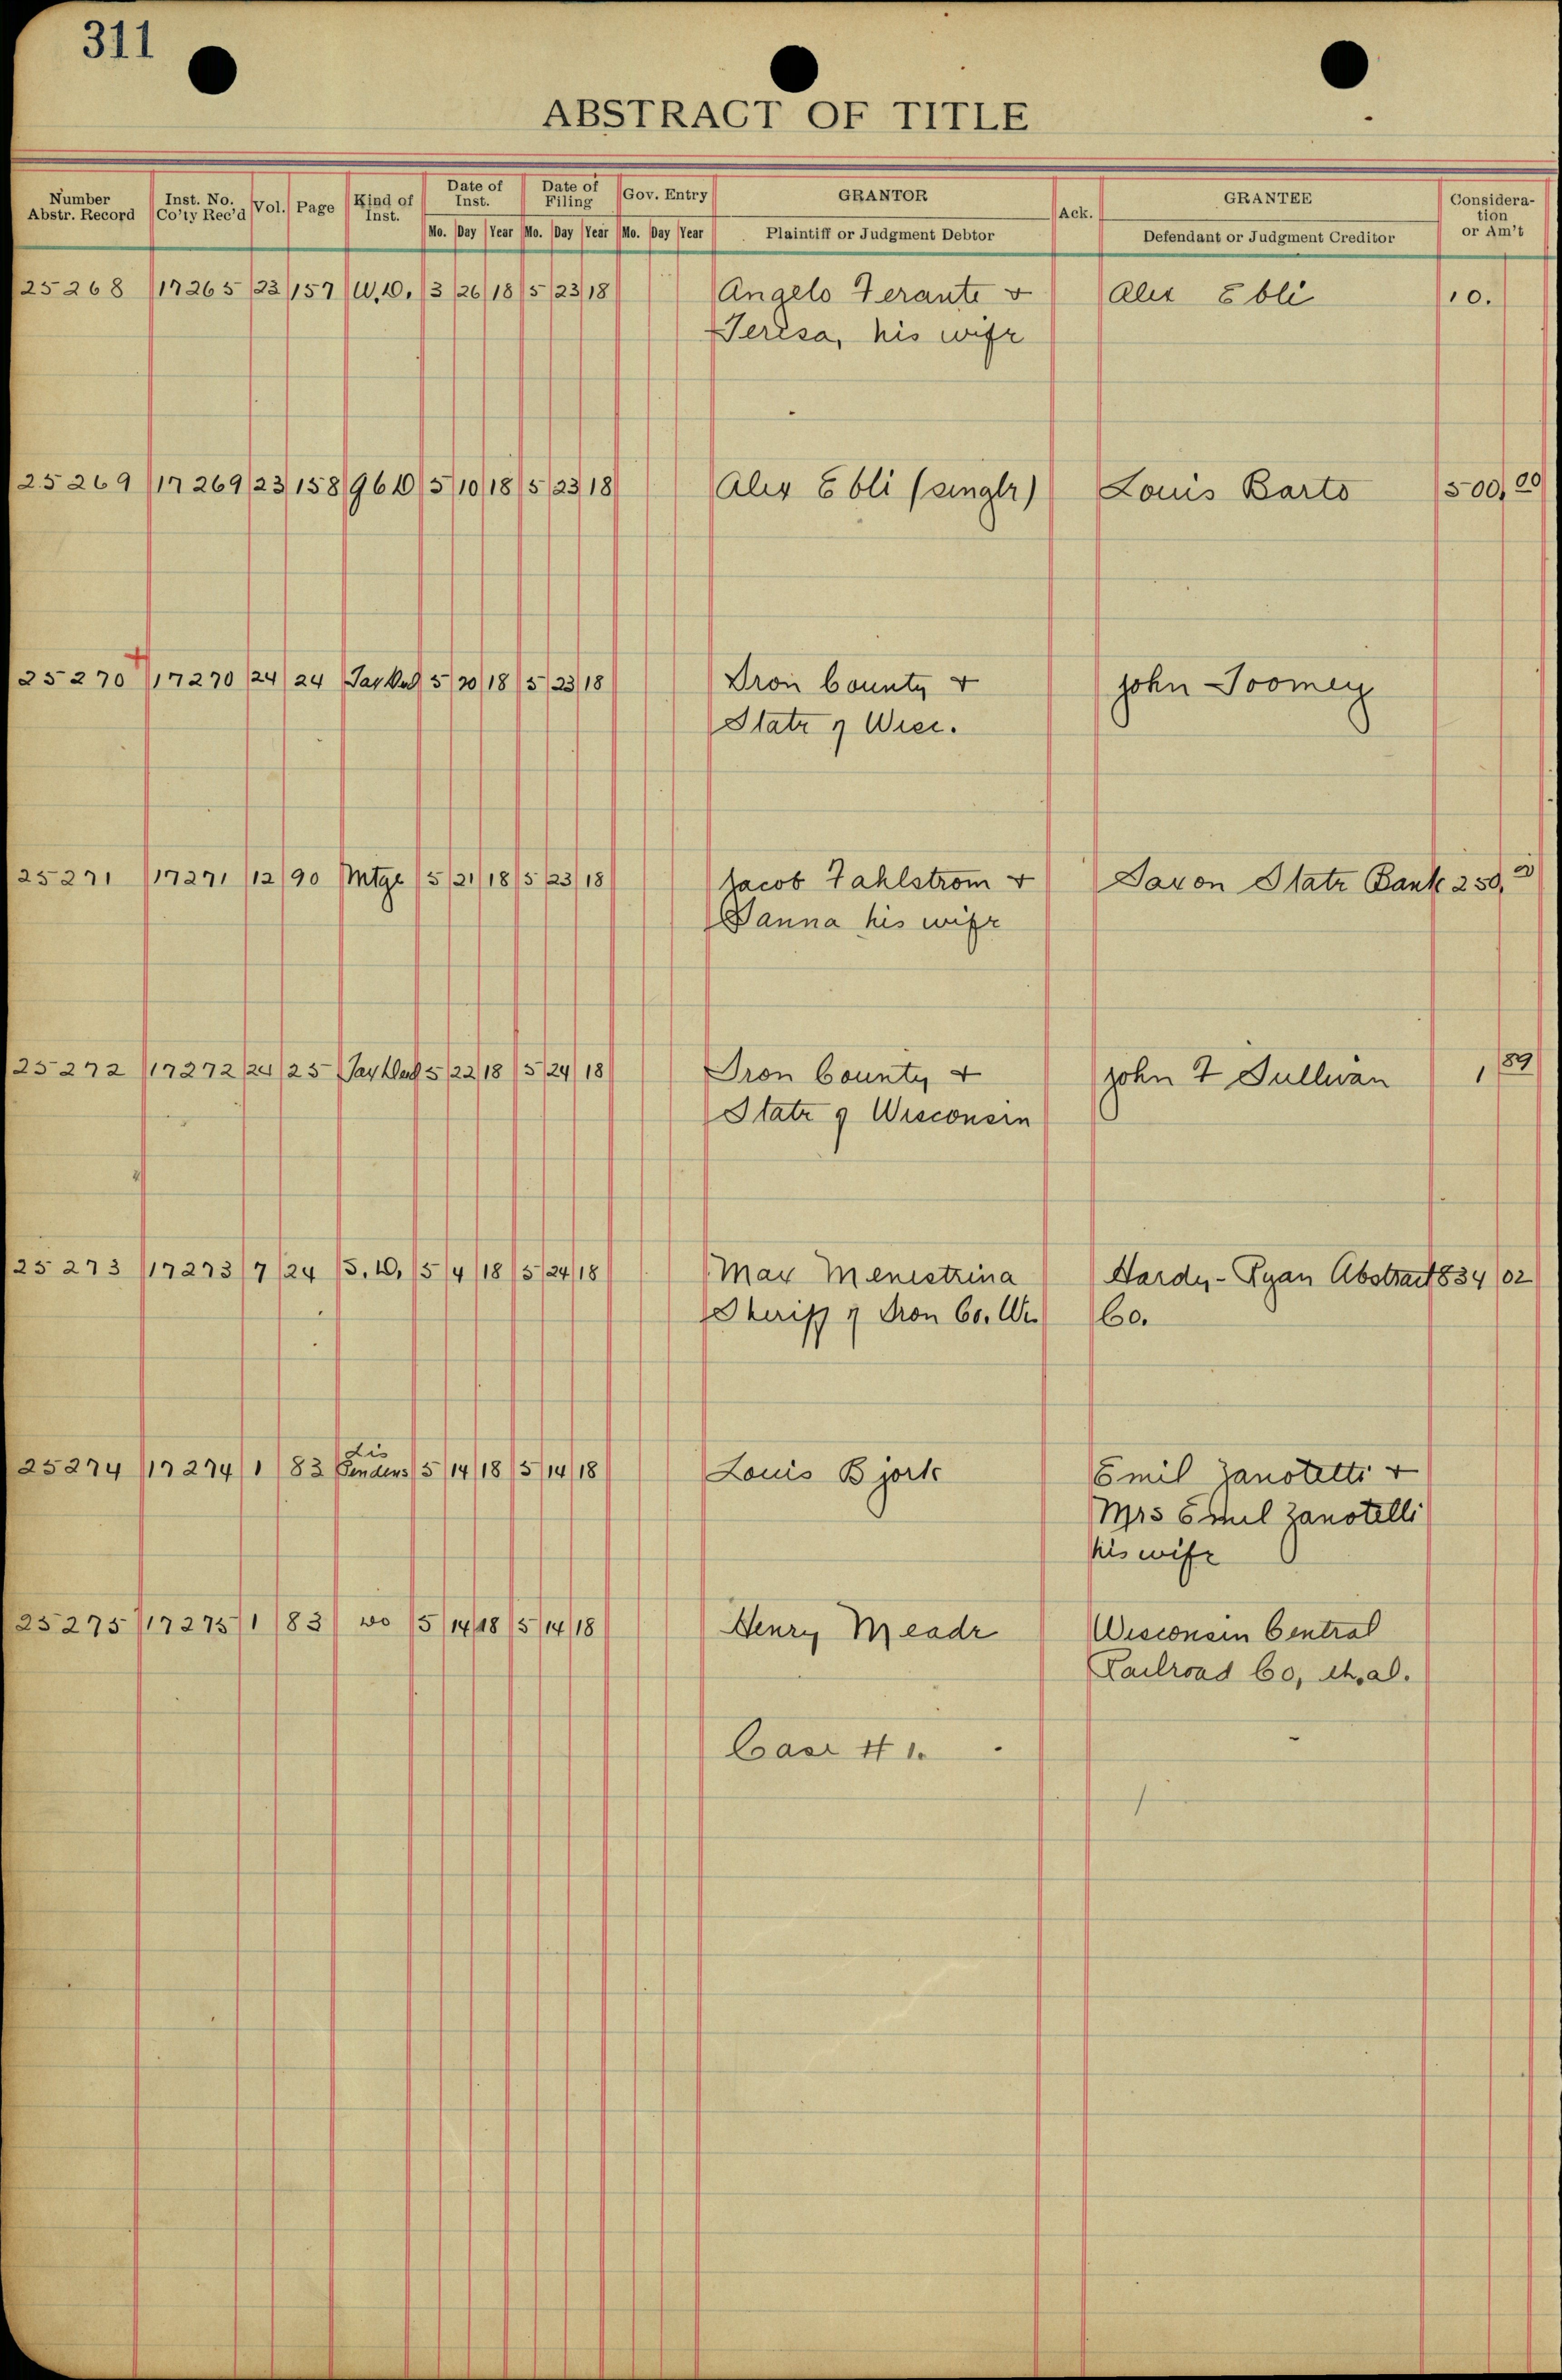 311
ABSTRACT OF TITLE
Number Abstr. Record Inst. No. Co'ty Rec'd Vol. Page Kind of Inst. Date of Inst. Date of Filing Gov. Entry GRANTOR Ack. GRANTEE Considera-tion or Am't
Mo. Day Year Mo. Day Year Mo. Day Year Plaintiff or Judgment Debtor Defendant or Judgment Creditor
25268 17265 23 157 W.D. 3 26 18 5 23 18 Angelo Ferante & Alex Ebli 10.
Teresa, his wife
25269 17269 23 158 5 10 18 5 23 18 Alex Ebli (single) Louis Barto 500.00
25270 + 17270 24 24 Tax 5 20 18 5 23 18 Iron County & John Toomey
State of Wisc.
25271 17271 12 90 Mtge 5 21 18 5 23 18 Jacob Fahlstrom & Saxon State Bank 250.
Sanna his wife
25272 17272 24 25 Tax 5 22 18 5 24 18 Iron County & John F Sullivan 1, 89
State of Wisconsin
25273 17273 7 24 S.D. 5 4 18 5 24 18 Max Menestrina Hardy-Ryan Abstract 834 02
Sheriff of Iron Co. Wi Co.
25274 17274 1 83 Lis Pendens 5 14 18 5 14 18 Louis Bjork Emil Zanotelli &
Mrs Emil Zanotelli
his wife
25275 17275 1 83 do 5 14 18 5 14 18 Henry Meade Wisconsin Central
Railroad Co, et. al.
Case # 1.